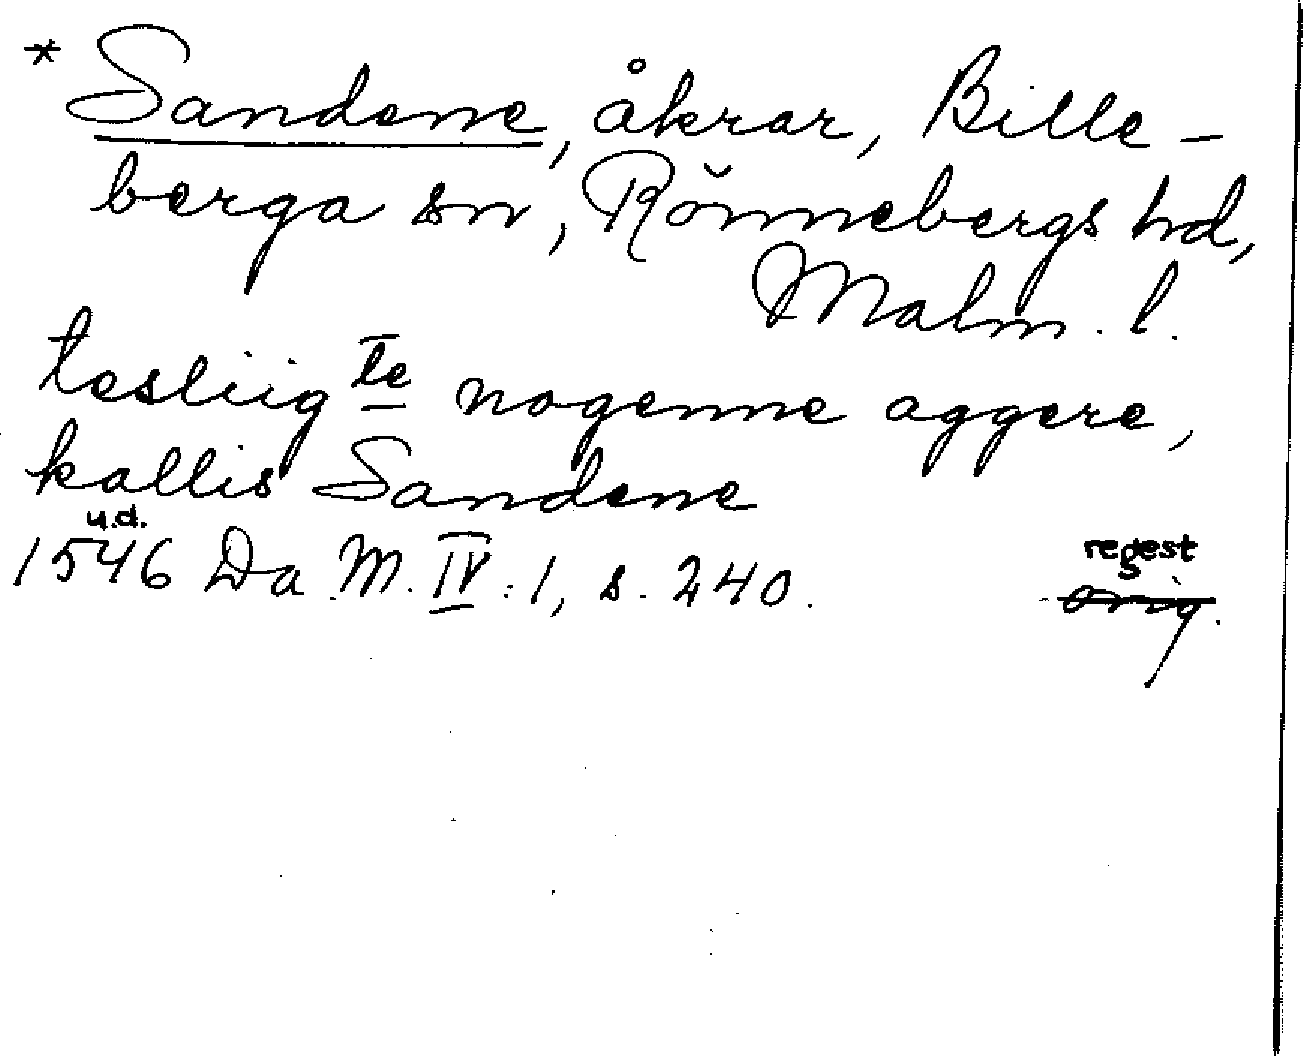 * Sandene, åkrar, Bille-
berga sn, Rönnebergs hd,
Malm. l.
tesliigte nogenne aggere,
kallis Sandene
u.d.
1546 Da. M. IV: 1, s. 240.
regest
orig.